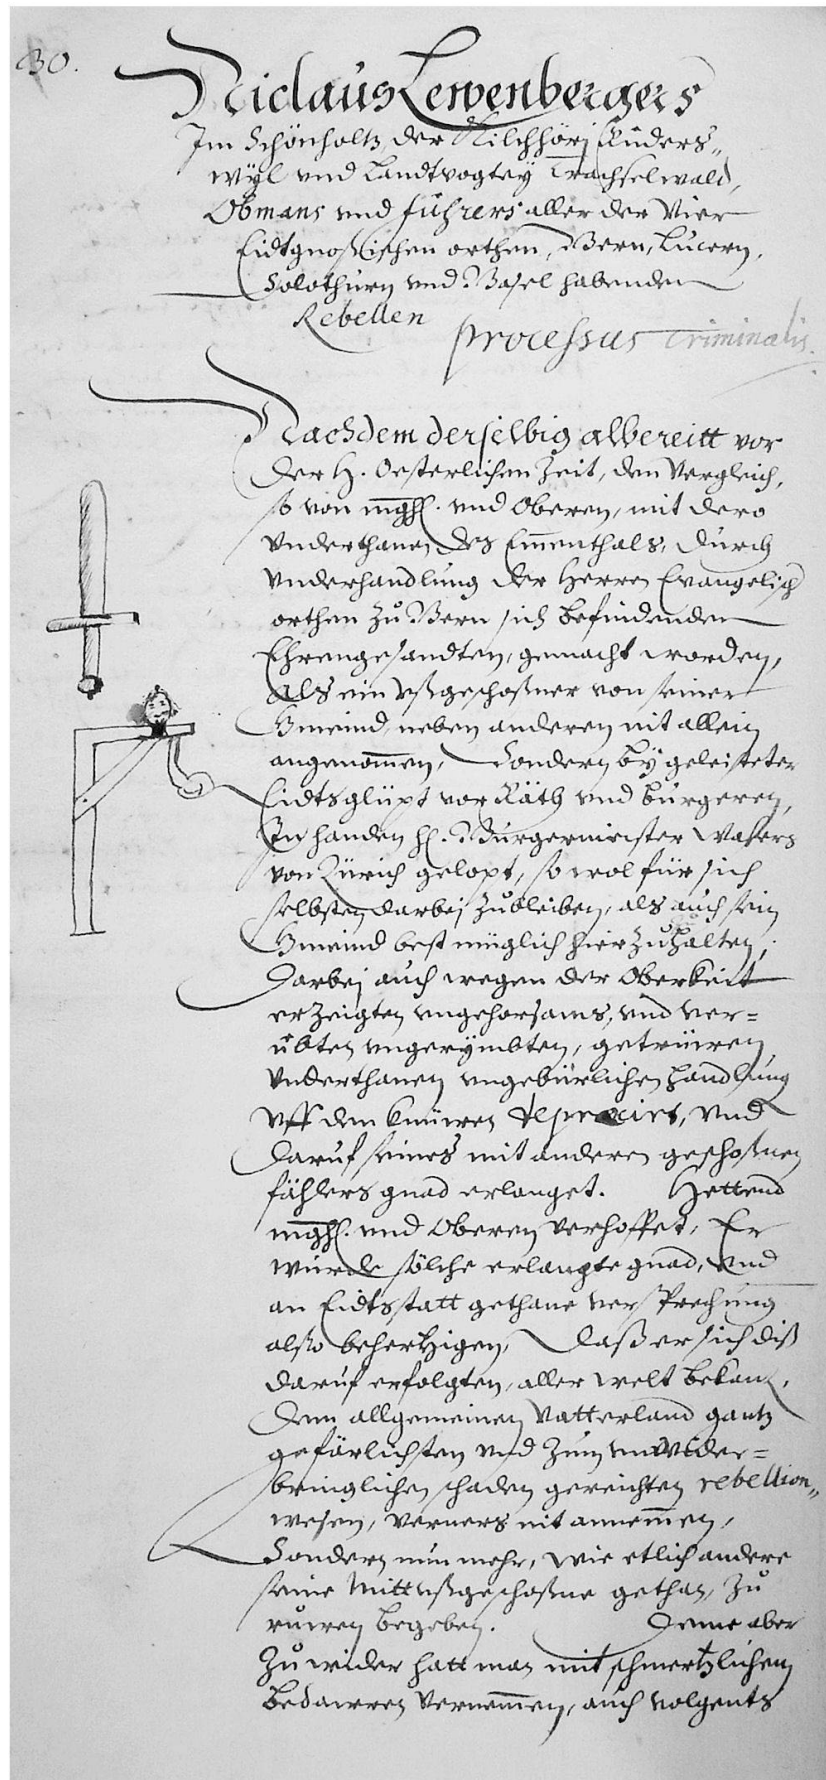 30.
Niclaus Lewenbergers
Im Schönholtz der Kilchhörj Ruders„
wyl und Landtvogtey Trachselwald,
Obmans und führers aller der Vier
Eidtgnoßischen orthen, Bern, Lucern,
Solothurn und Basel habenden
Rebellen
processus Criminalis.
Nachdem derselbig albereitt vor
der H. Oesterlichen Zeit, den Vergleich,
so von mghh. und Oberen, mit dero
Underthanen des Em̄enthals, durch
Underhandlung der Herren Evangelisch
orthen zu Bern sich befindenden
Ehrengesandten, gemacht worden,
Als ein ußgeschoßner von seiner
Gmeind, neben anderen nit allein
angenom̄en, Sondern by geleisteter
Eidtsglüpt vor Räth und burgeren,
In handen hh. Burgermeister Wasers
von Zürich gelopt, so wol für sich
selbsten darbej zubleiben, als auch sein
Gmeind best müglich hierzuhalten,
Darbej auch wegen der Oberkeit
erzeigten ungehorsams, und ver=
übten ungerÿmbten, getrüwen
Underthanen ungebürlichen handlung
uff den knüwen depreciert, und
daruf seines mit anderen geschoßnen
fählers gnad erlanget. Hettend
mghh. und Oberen verhoffet, Er
wurde sölche erlangte gnad, und
an Eidtsstatt gethane versprechung
also behertzigen, daß er sich diß
daruf erfolgten, aller welt bekant,
dem allgemeinen Vatterland gantz
gefärlichsten und zum unwider=
bringlichen schaden gereichten rebellion„
wesen, verners nit annem̄en,
Sonder nun mehr, wie etlich andere
seine Mittußgeschoßne gethan, zu
ruwen begeben. Deme aber
zu wider hatt man mit schmertzlichem
bedauren vernem̄en, auch volgents